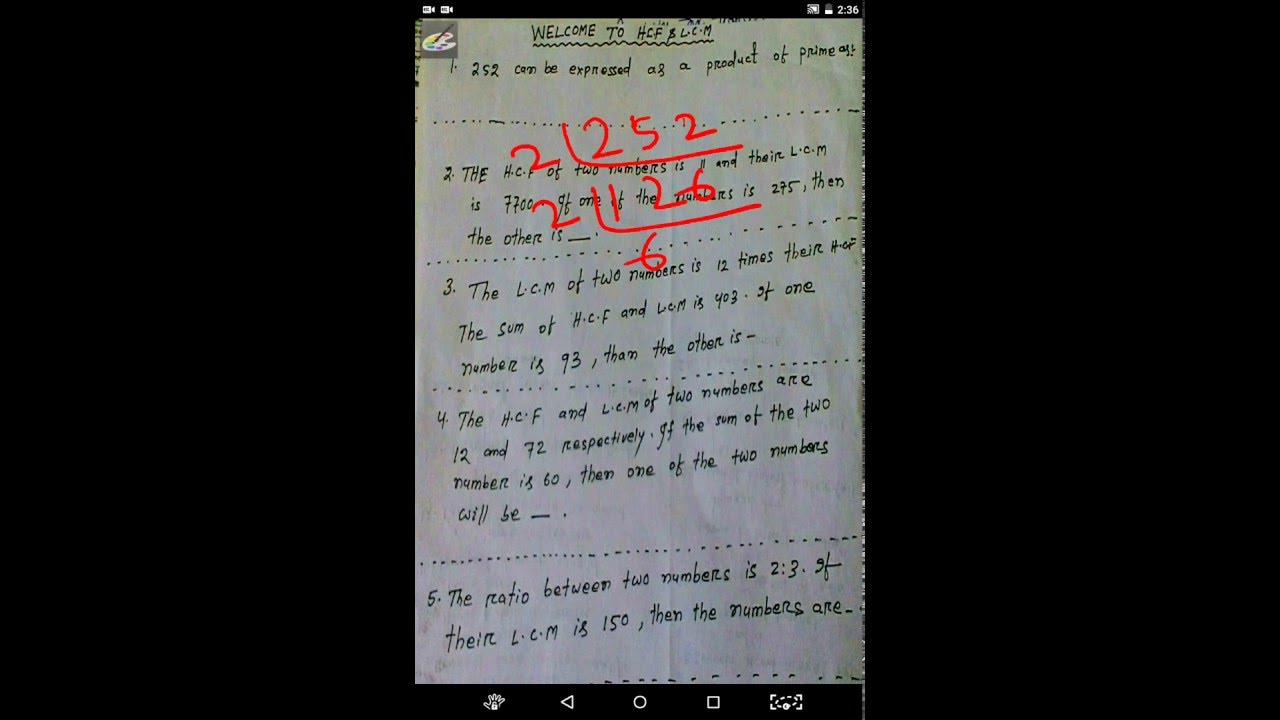 2:36
WELCOME TO HCF & L.C.M
1. 252 can be expressed as a product of prime as:
2 252
2. THE H.C.F of two numbers is 11 and their L.C.M
2 126
is 7700. If one of the numbers is 275, then
the other is —.
6
3. The L.C.M of two numbers is 12 times their H.C.F
The sum of H.C.F and L.C.M is 403. If one
number is 93, than the other is –
4. The H.C.F and L.C.M of two numbers are
12 and 72 respectively. If the sum of the two
number is 60, then one of the two numbers
will be — .
5. The ratio between two numbers is 2:3. If
their L.C.M is 150, then the numbers are –.